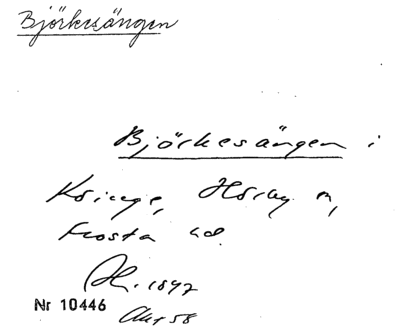 Björkesängen
Björkesängen i
Kringe, Hörby sn,
Frosta hd.
1847
Nr 10446
Akt 58